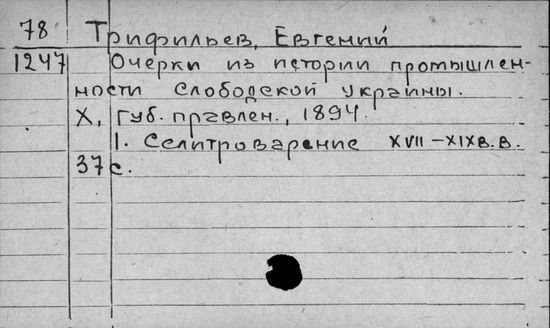 78 Трифильев, Евгений
1247 Очерки из истории промышлен-
ности Слободской украины.
Х, Губ. правлен., 1894.
1. Селитроварение XVII-XIXв.в.
37 с.